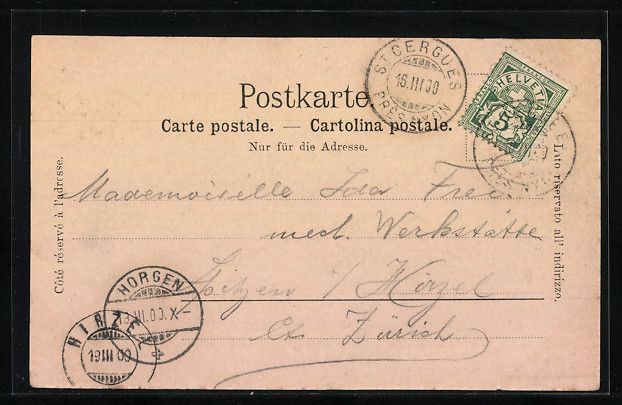 ST CERGUES
16.III.00
PRÈS NYON
HELVETIA
5
Postkarte.
Carte postale. — Cartolina postale.
Nur für die Adresse.
Côté réservé à l'adresse.
Lato riservato all' indirizzo.
Mademoiselle Ida Frei
mech. Werkstätte
i/ Hirzel
Ct. Zürich
HORGEN
HIRZEL